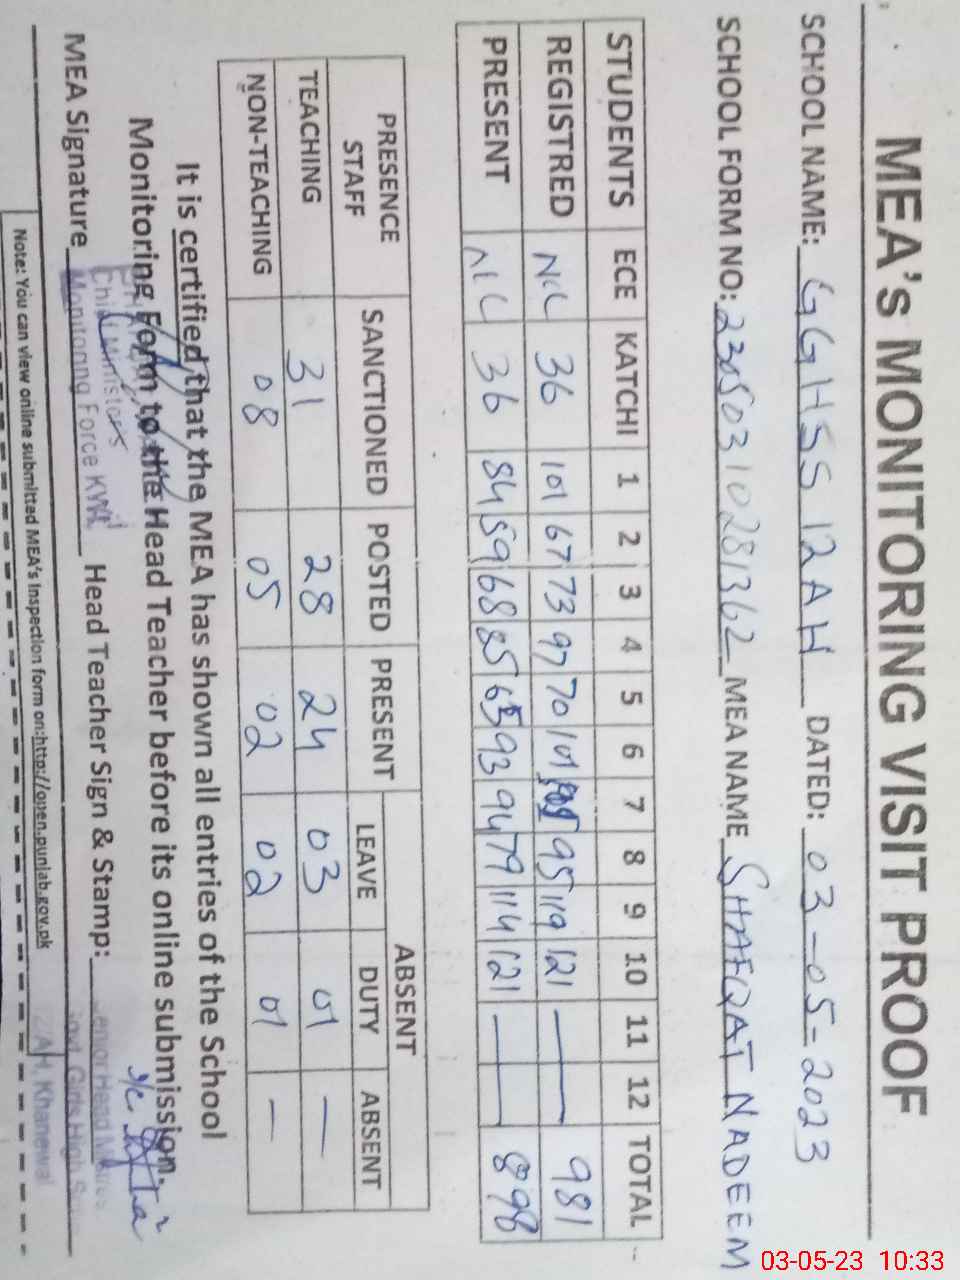 MEA's MONITORING VISIT PROOF
SCHOOL NAME: GGHSS 12AH DATED: 03-05-2023
SCHOOL FORM NO: 23050310281362 MEA NAME SHAFQAT NADEEM
STUDENTS ECE KATCHI 1 2 3 4 5 6 7 8 9 10 11 12 TOTAL
REGISTRED NIL 36 101 67 73 97 70 101 95 119 121 — — 981
PRESENT NIL 36 84 59 68 85 65 93 94 79 114 121 — — 898
PRESENCE STAFF SANCTIONED POSTED PRESENT ABSENT
LEAVE DUTY ABSENT
TEACHING 31 28 24 03 01 —
NON-TEACHING 08 05 02 02 01 —
It is certified that the MEA has shown all entries of the School
Monitoring Form to the Head Teacher before its online submission.
MEA Signature Head Teacher Sign & Stamp:
Chief Minister's
Monitoring Force KWL
Senior Head Mistress
Govt. Girls High
12/AH, Khanewal
Note: You can view online submitted MEA's Inspection form on:http://open.punjab.gov.pk
03-05-23 10:33